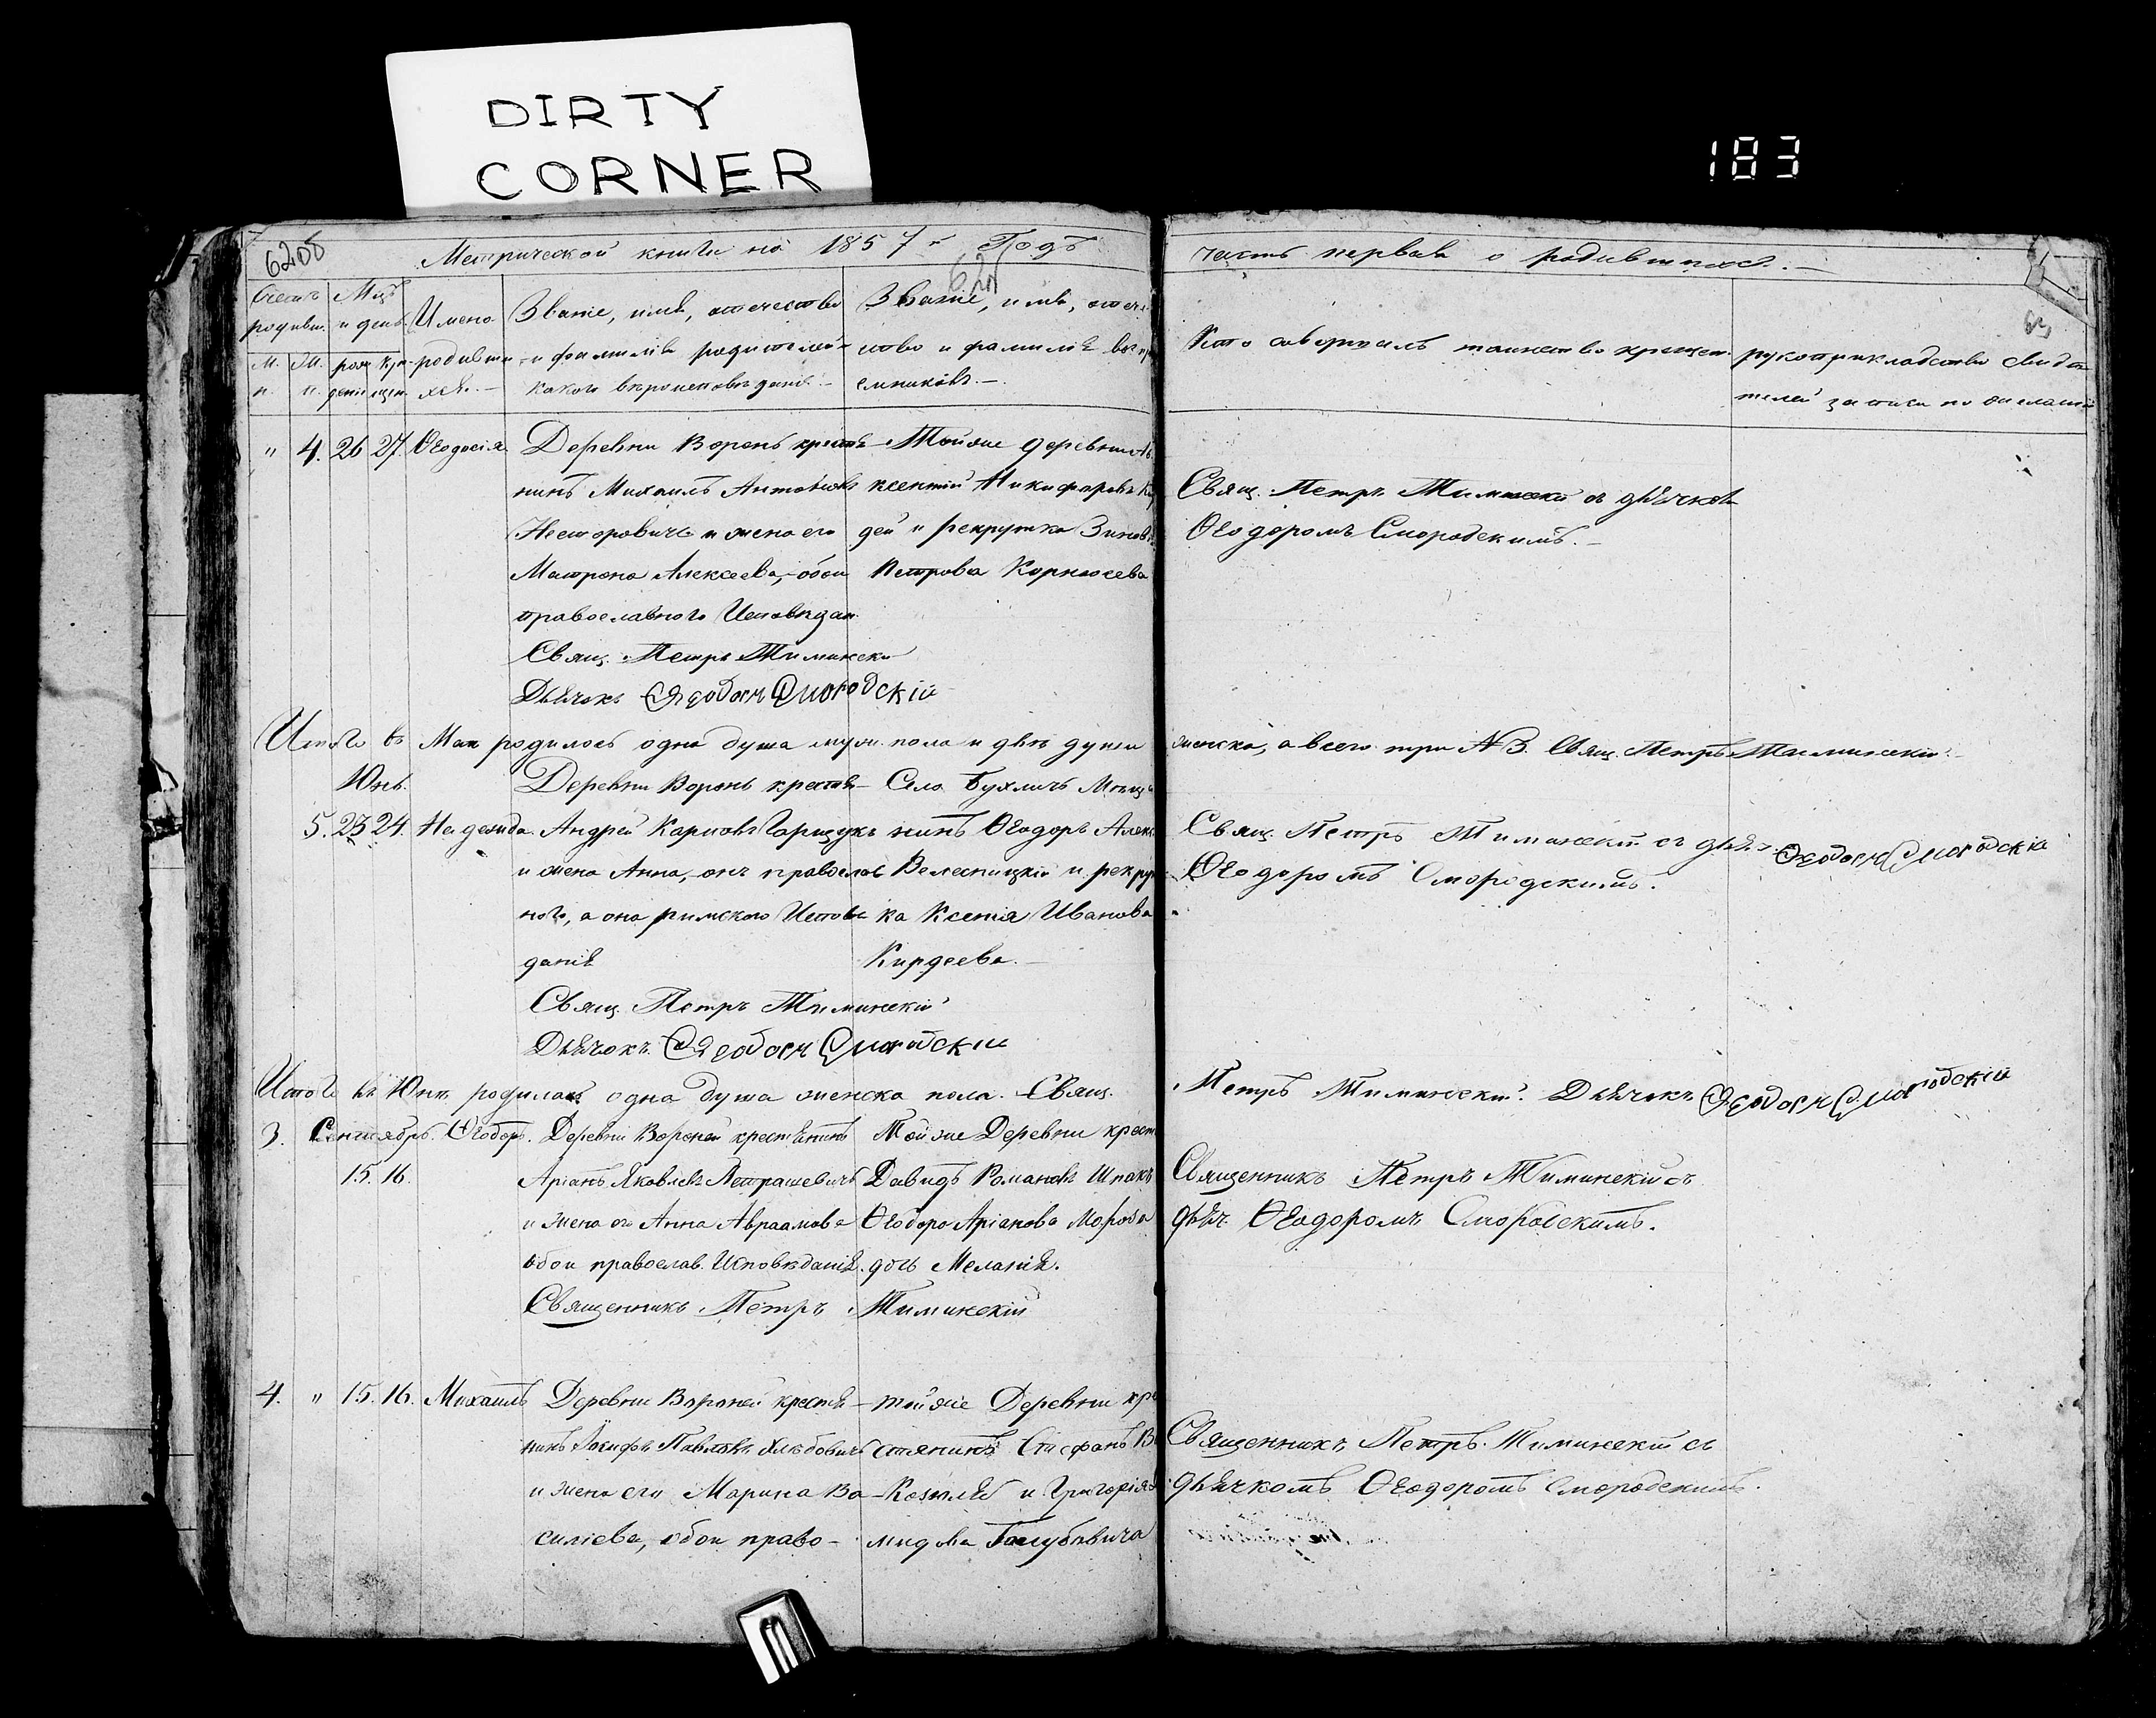 DIRTY
CORNER
183
Метрической книги на 1857й Годъ
часть первая о родившихся.
Счетъ родивш.
Мцъ и день
Имена родивши-хся.
Званіе, имя, отечество
и фамилія родителей и
какого вѣроисповѣданія.
Званіе, имя, отече-
ство и фамилія воспр
емниковъ.
Кто совершалъ таинство крещен.
рукоприкладство свидѣ-
телей записи по желанію
м. п.
ж. п.
рож денія
кре щен.
" 4. 26 27. Ѳеодосія.
Деревни Воронь кресть-
нинъ Михаилъ Антоновъ
Несторовичъ и жена его
Матрона Алексеева, обои
православного Исповѣдан.
Свящ. Петръ Тиминскі
Дьячокъ Ѳеодоръ Смородскій
Тойже деревни Ав
ксентій Никифоровъ Кир
дей и рекрутка Зинов
Петрова Корнюсева
Свящ. Петръ Тиминскій съ дьячком
Ѳеодоромъ Смородскимъ.
Итого въ Маи родилось одна душа муж. пола и двѣ души
женска, а всего три №3. Свящ. Петръ Тиминскій.
Юнь.
5. 23 24. Надежда.
Деревни Воронь крестья-
Андрей Карповъ Гарщукъ
и жена Анна, онъ православ
ного, а она римского Исповѣ
данія
Свящ. Петръ Тиминскій
Дьячокъ. Ѳеодоръ Смородскій
Села Бухличъ Мѣща
нинъ Ѳеодоръ Алек
Велесницкій и рекрут
ка Ксенія Иванова
Кирдеева.
Свящ. Петръ Тиминскій съ дьяч
Ѳеодоромъ Смородскимъ.
Ѳеодоръ Смородскій
Итого въ Юнѣ родилась одна душа женска пола. Свящ.
Петръ Тиминскій. Дьячокъ Ѳеодоръ Смородскій
3. Сентябрь. Ѳеодоръ.
15. 16.
Деревни Вороней крестьянинъ
Аріанъ Яковлевъ Петрашевичъ
и жена его Анна Авраамова
обои православ. Исповѣданія.
Священникъ Петръ Тиминскій
Той же Деревни крест
Давидъ Романовъ Шпакъ
Ѳеодора Аріанова Мороза
дочь Меланія.
Священникъ Петръ Тиминскій съ
дьяч. Ѳеодоромъ Смородскимъ.
4. " 15. 16. Михаилъ
Деревни Вороней крестья-
нинъ Іосифъ Павловъ Хлѣбовичъ
и жена его Марина Ва-
силіева, обои право-
той же Деревни кре
стянинъ Стефанъ В
Козмлѣ и Григорія Д
мидова Голубовича
Священникъ Петръ Тиминскій съ
дьячкомъ Ѳеодоромъ Смородскимъ.